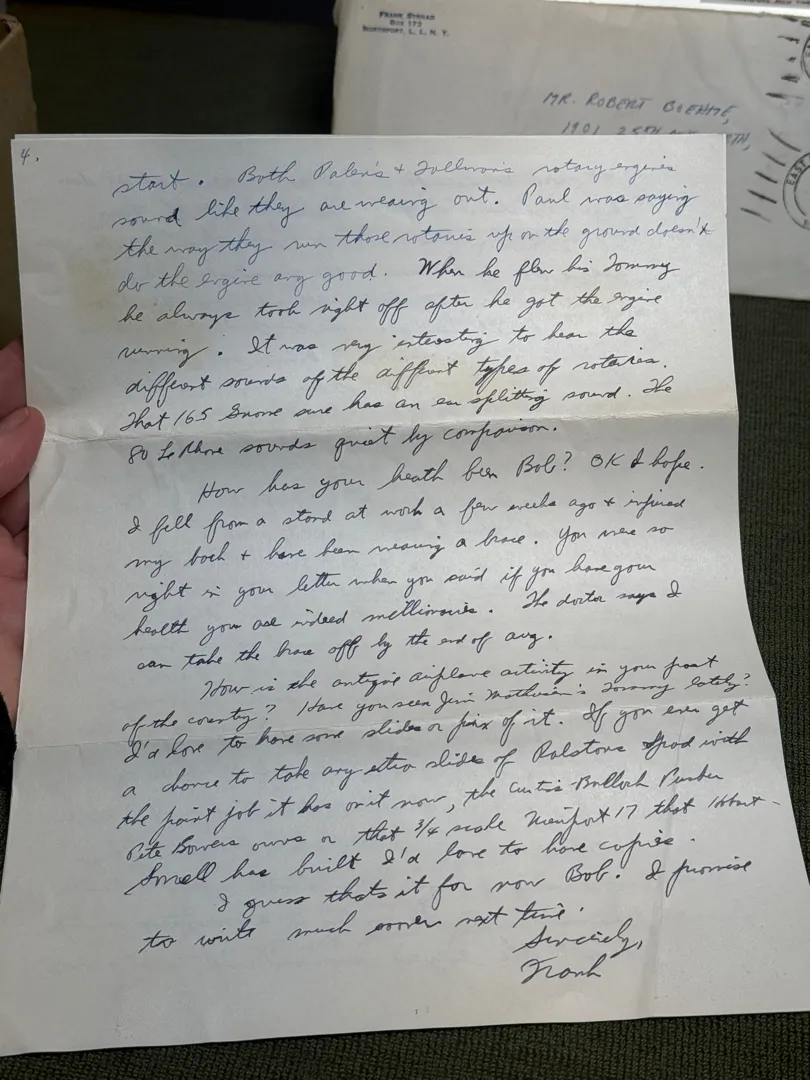 FRANK STRNAD
BOX 173
NORTHPORT, L. I., N. Y.
MR. ROBERT BOEHME,
1901 25TH
EAST
4.
start. Both Palen's + rotary engines
sound like they are wearing out. Paul was saying
the way they run those rotaries up on the ground doesn't
do the engine any good. When he flew his Tommy
he always took right off after he got the engine
running. It was very interesting to hear the
different sounds of the different types of rotaries.
That 165 Gnome sure has an ear splitting sound. The
80 Le Rhone sounds quiet by comparison.
How has your heath been Bob? OK I hope.
I fell from a stand at work a few weeks ago + injured
my back + have been wearing a brace. You were so
right in your letter when you said if you have your
health you are indeed millionaire. The doctor says I
can take the brace off by the end of aug.
How is the antique airplane activity in your part
of the country? Have you seen Jim Tommy lately?
I'd love to have some slides or pix of it. If you ever get
a chance to take any extra slides of Ralstons Spad with
the paint job it has on it now, the Curtis Pusher
Pete Bowers owns or that 3/4 scale Nieuport 17 that
Small has built I'd love to have copies.
I guess thats it for now Bob. I promise
to write much sooner next time.
Sincerely,
Frank